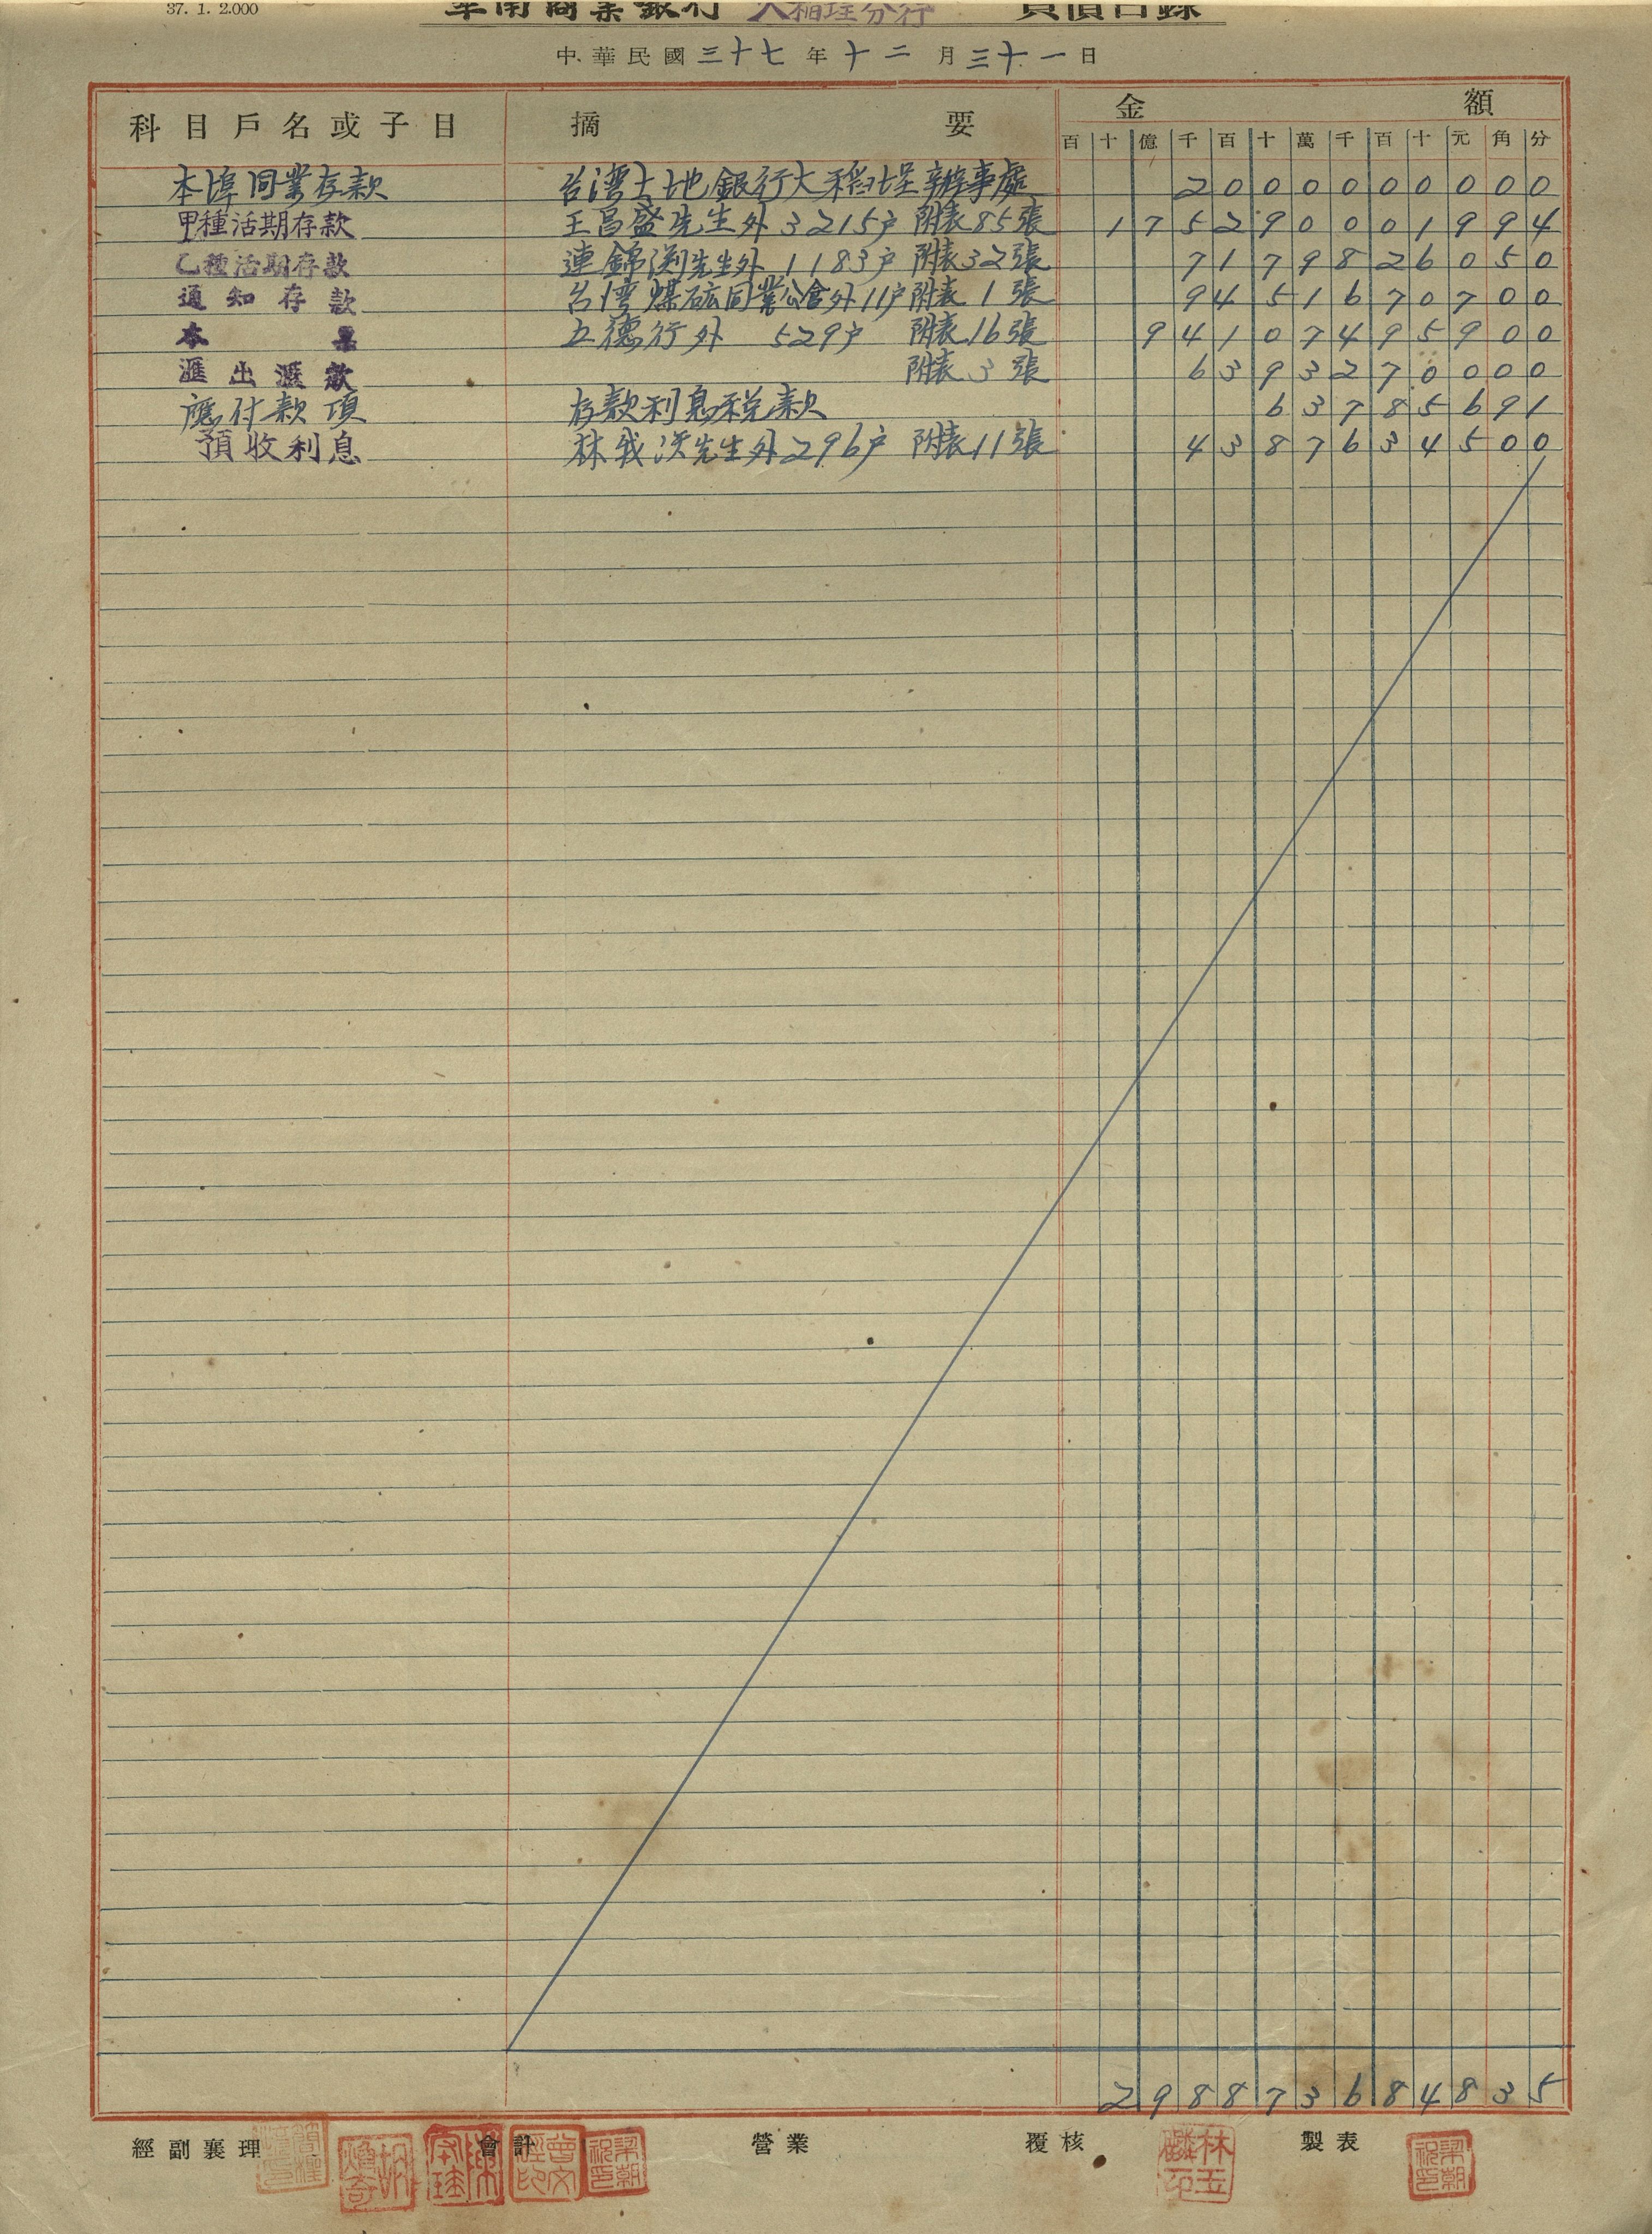 37. 1. 2.000
華南商業銀行 大稻埕分行 負債目錄
中華民國三十七年十二月三十一日
科目戶名或子目 摘要 金額
百 十 億 千 百 十 萬 千 百 十 元 角 分
本埠同業存款 台灣土地銀行大稻埕辦事處 2 0 0 0 0 0 0 0 0 0
甲種活期存款 王昌盛先生外3215户 附表85張 1 7 5 2 9 0 0 0 1 9 9 4
乙種活期存款 連錦渕先生外1183户 附表32張 7 1 7 9 8 2 6 0 5 0
通知存款 台湾煤砿同業公會外11户 附表1張 9 4 5 1 6 7 0 7 0 0
本票 立德行外 529户 附表16張 9 4 1 0 7 4 9 5 9 0 0
滙出滙款 附表3張 6 3 9 3 2 7 0 0 0 0
應付款項 存款利息税款 6 3 7 8 5 6 9 1
預收利息 林我沃先生外296户 附表11張 4 3 8 7 6 3 4 5 0 0
2 9 8 8 7 3 6 8 4 8 3 5
經副襄理 會計 營業 覆核 製表
林玉麟印 梁朝祝印